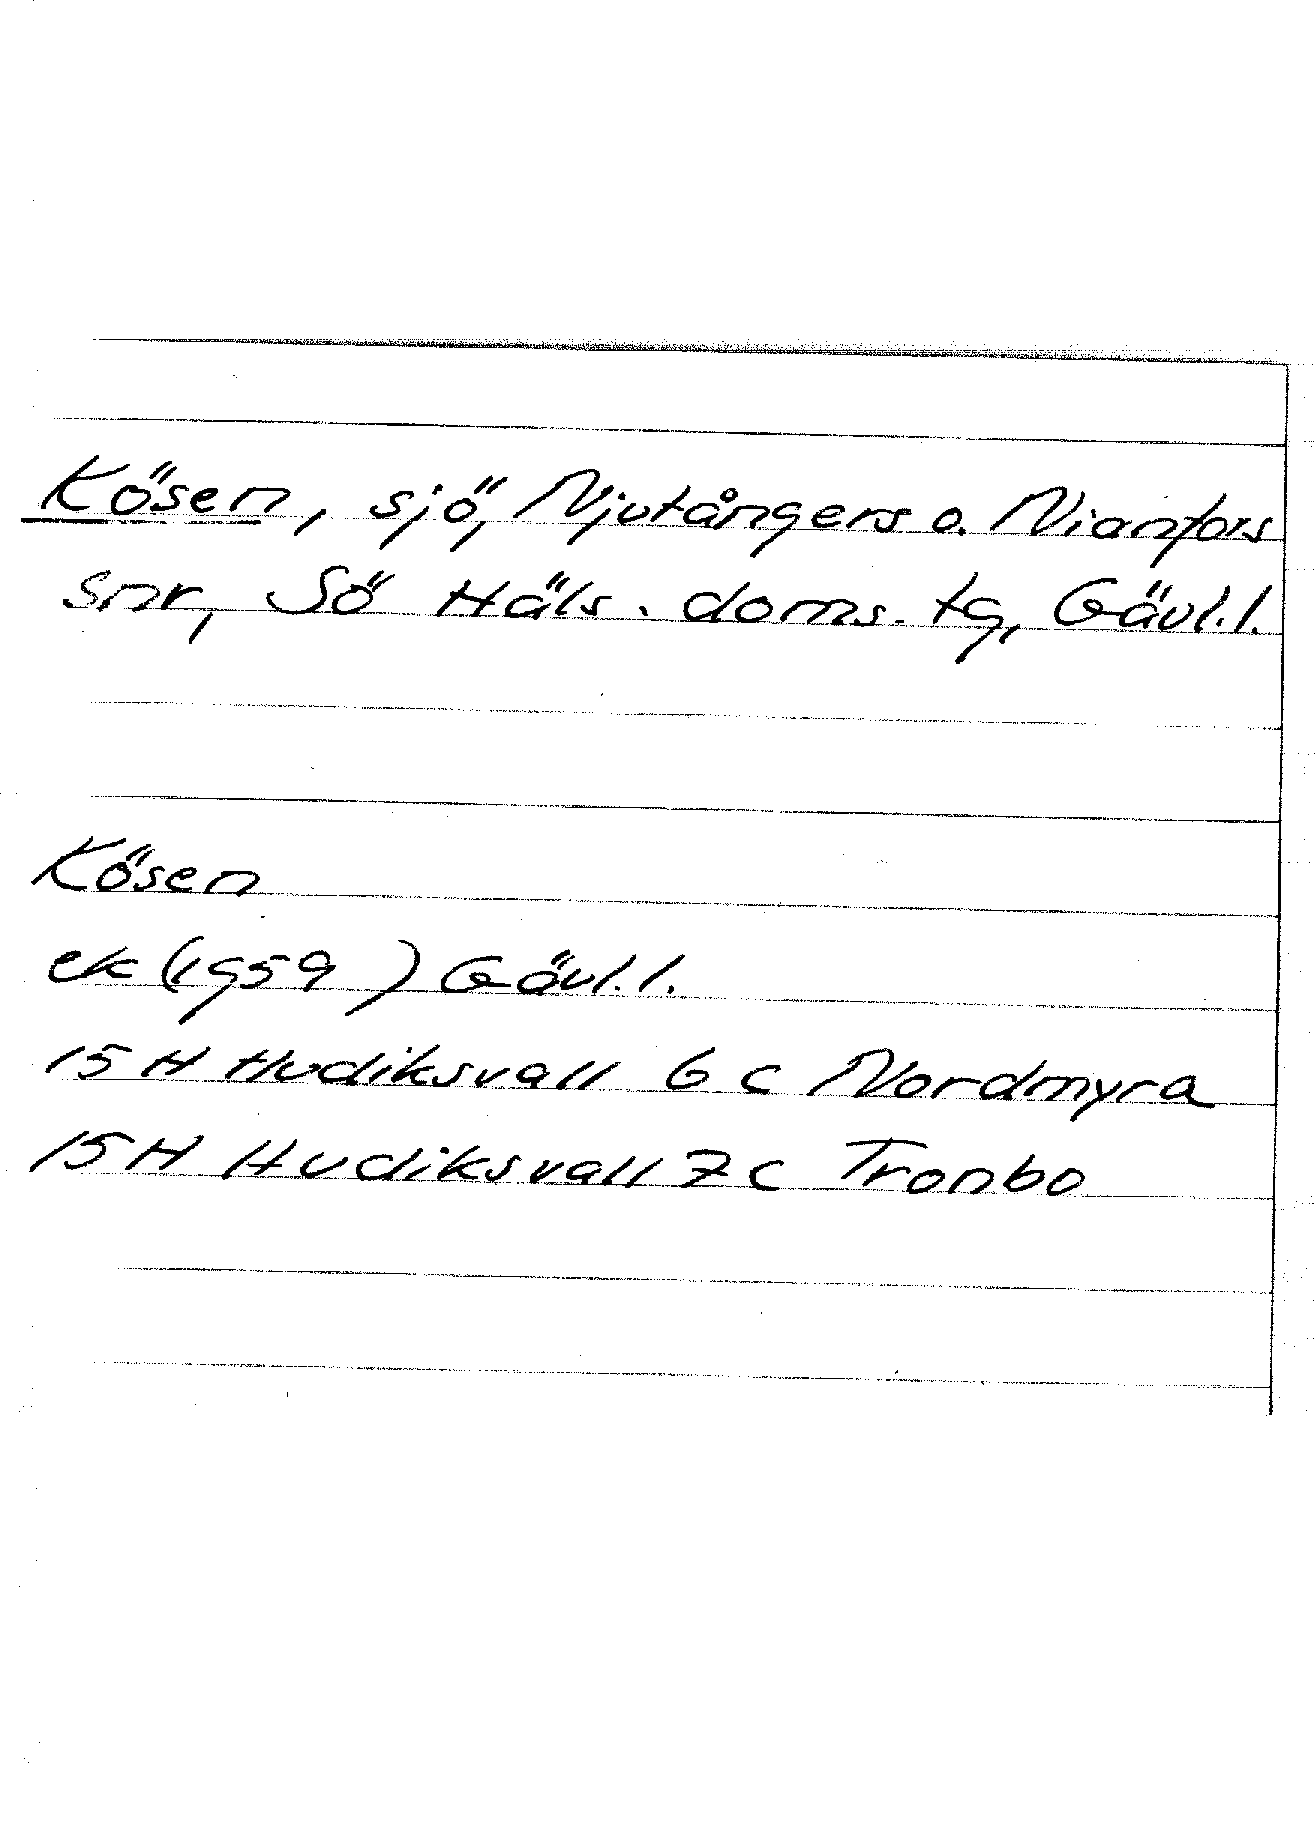 Kösen, sjö, Njutångers o. Nianfors
snr, Sö Häls. doms. tg, Gävl.l.
Kösen
ek (1959) Gävl.l.
15 H Hudiksvall 6 c Nordmyra
15 H Hudiksvall 7 c Tronbo